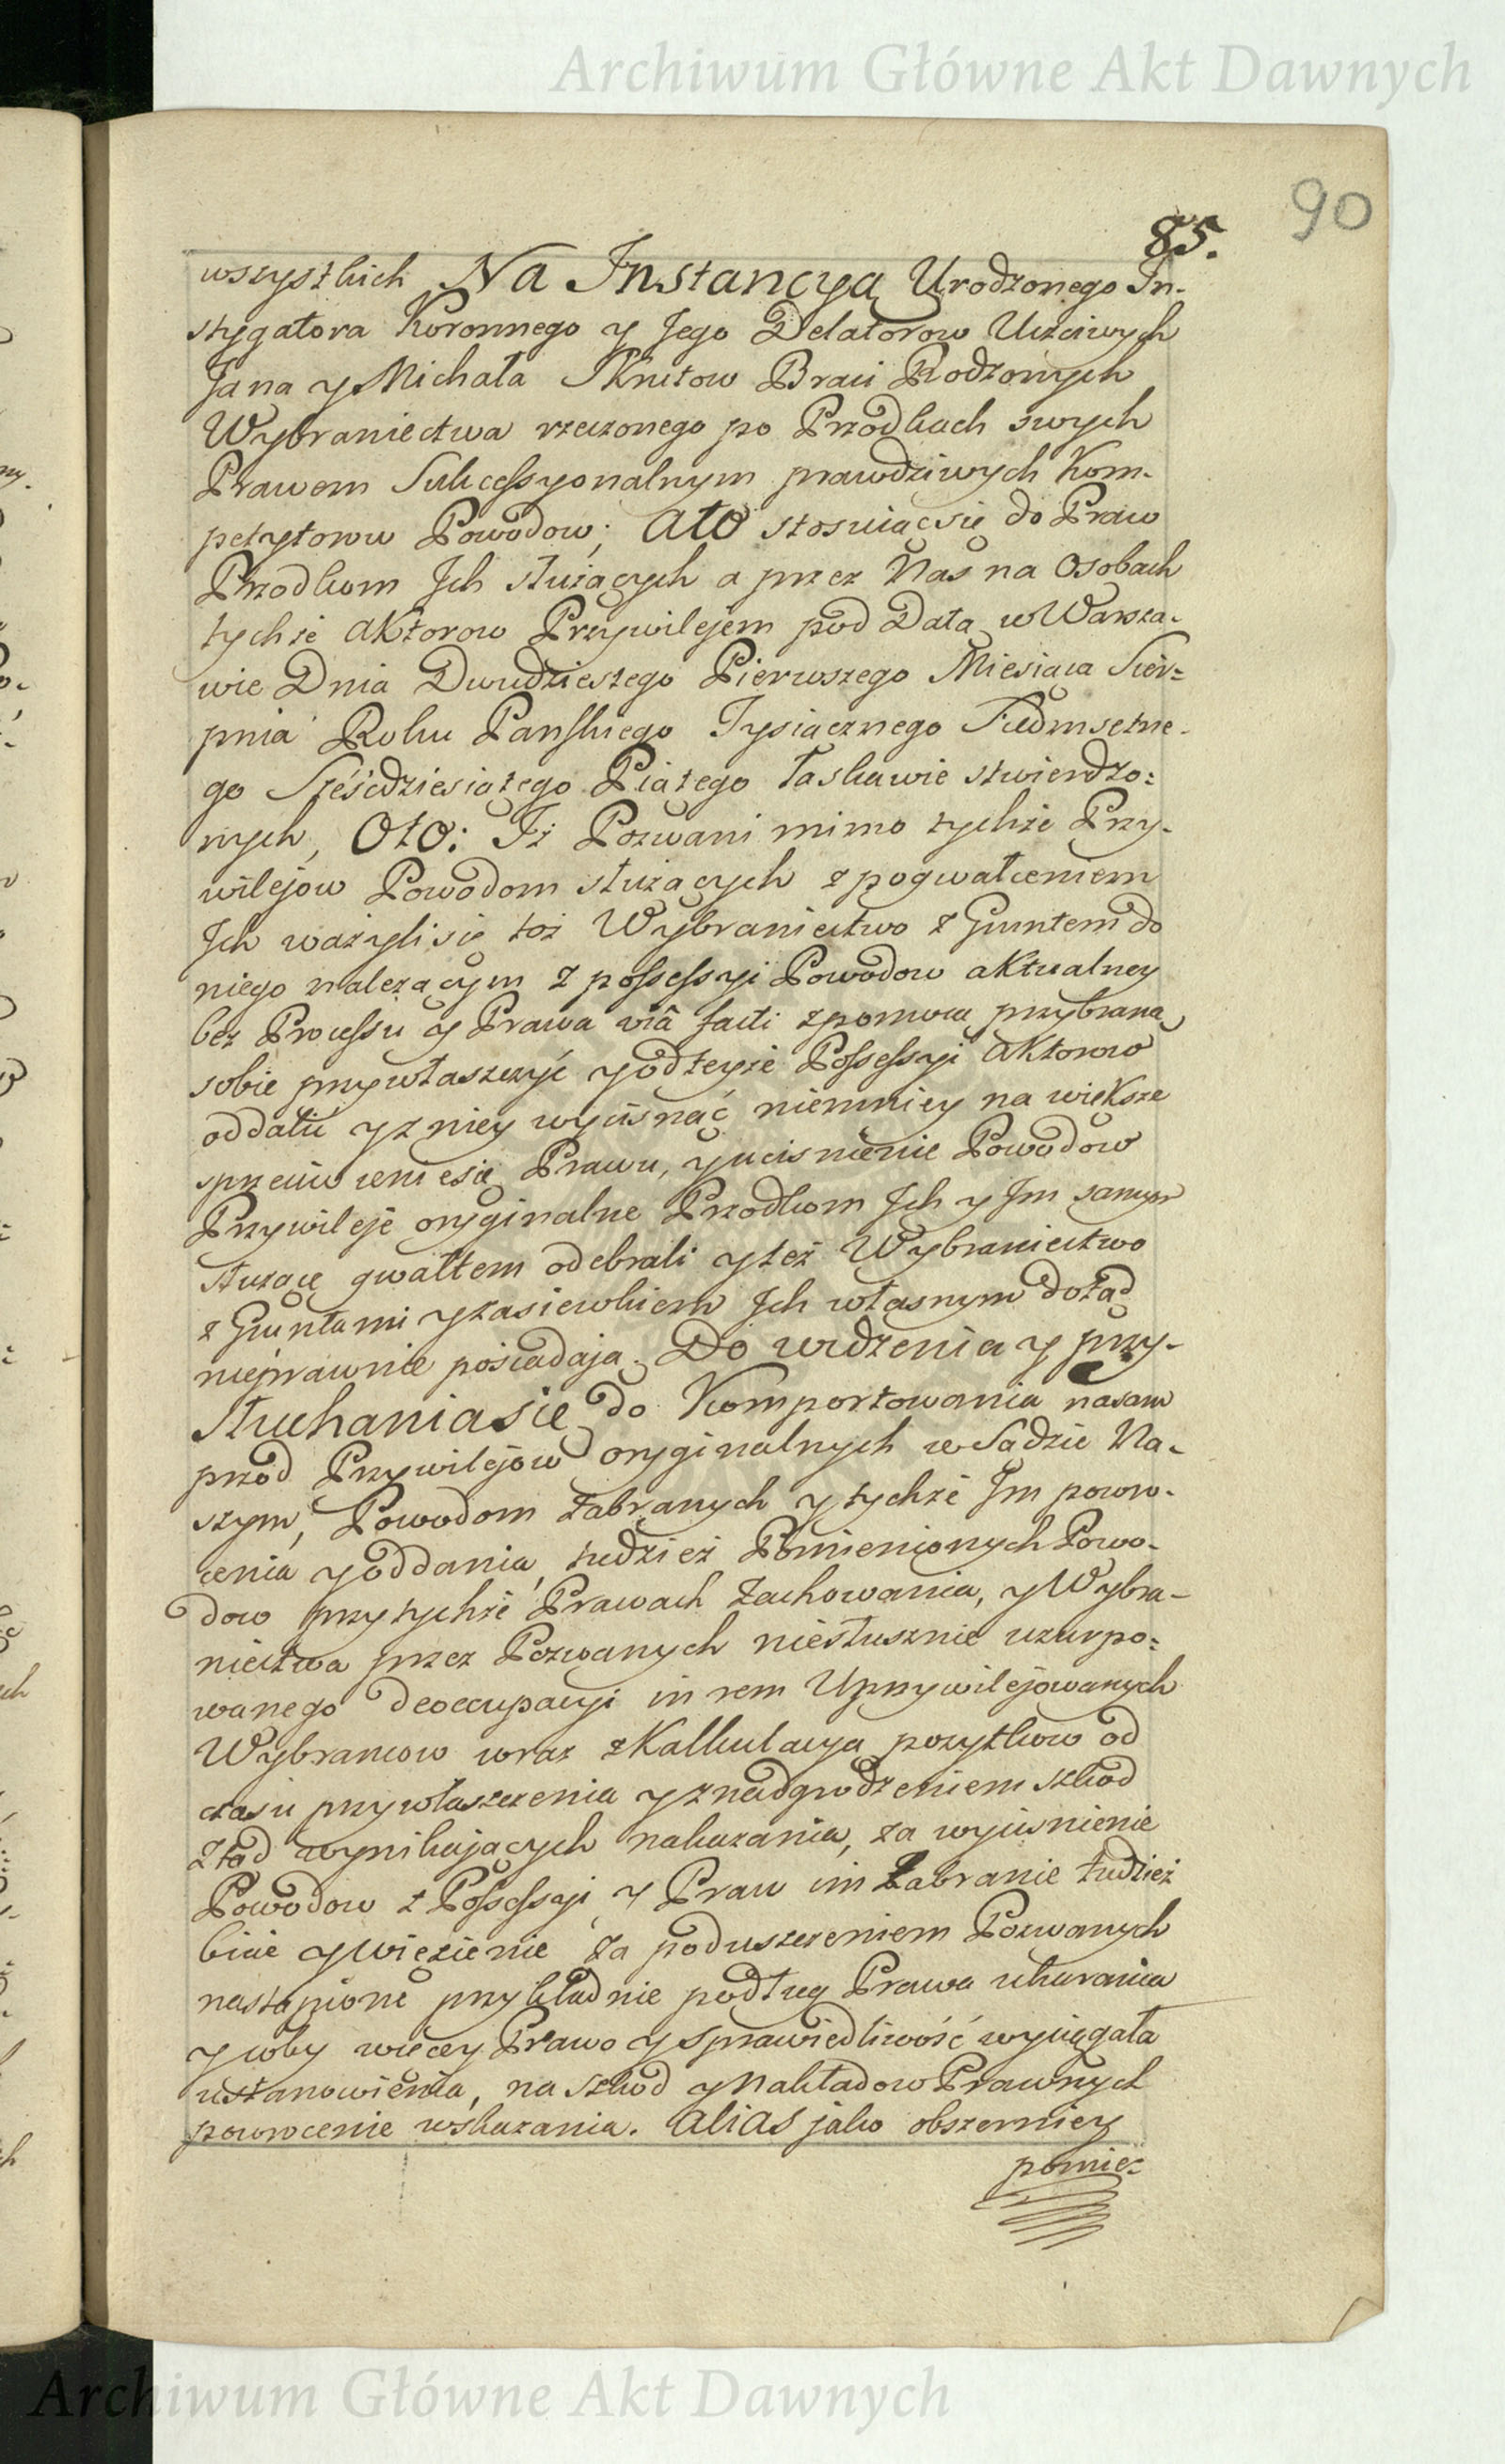 Archiwum Główne Akt Dawnych
90
85.
wszystkich Na Instancyą Urodzonego In-
stygatora Koronnego y Jego Delatorow Uczciwych
Jana y Michała Braci Rodzonych
Wybraniectwa rzeczonego po Przodkach swych
Prawem Sukcessyonalnym prawdziwych Kom-
petytorow Powodow; Ato stosuiąc się do Praw
Przodkom Ich służących a przez Nas na Osobach
tychże Aktorow Przywilejem pod Datą w Warsza-
wie Dnia Dwudziestego Pierwszego Miesiąca Sier=
pnia Roku Pańskiego Tysiącznego Siedmsetne-
go Sześćdziesiątego Piątego łaskawie stwierdzo=
nych, Oto: Iż Pozwani mimo tychże Przy-
wilejow Powodom służących z pogwałceniem
Ich ważyli się toż Wybraniectwo z Gruntem do
niego należącym z possessyi Powodow aktualney
bez Processu y Prawa viâ facti z pomocą przybraną
sobie przywłaszczyć y od teyże Possessyi Aktorow
oddalić y z niey wycisnąć niemniey na większe
sprzeciwienie się Prawu, y uciśnienie Powodow
Przywileje oryginalne Przodkom Ich y Im samym
służące gwałtem odebrali y też Wybraniectwo
z Gruntami y zasiewkiem Ich własnym dotąd
nieprawnie posiadają. Do widzenia y przy-
słuchania się do Komportowania nasam
przod Przywilejow oryginalnych w Sądzie Na-
szym, Powodom zabranych y tychże Im powro-
cenia y oddania, tudzież Pomienionych Powo-
dow przy tychże Prawach zachowania, y Wybra-
niectwa przez Pozwanych niesłusznie uzurpo=
wanego deoccupacyi in rem Uprzywilejowanych
Wybrancow wraz z Kalkulacyą pożytkow od
czasu przywłaszczenia y z nadgrodzeniem szkod
ztąd wynikających nakazania, za wyciśnienie
Powodow z Possessyi y Praw im zabranie tudzież
bicie y więzienie za poduszczeniem Pozwanych
nastąpione przykładnie podług Prawa ukarania
y coby więcey Prawo y sprawiedliwość wyciągała
ustanowienia, na szkod y nakładow Prawnych
powrocenie wskazania. Alias jako obszerniey
pomie=
Archiwum Główne Akt Dawnych